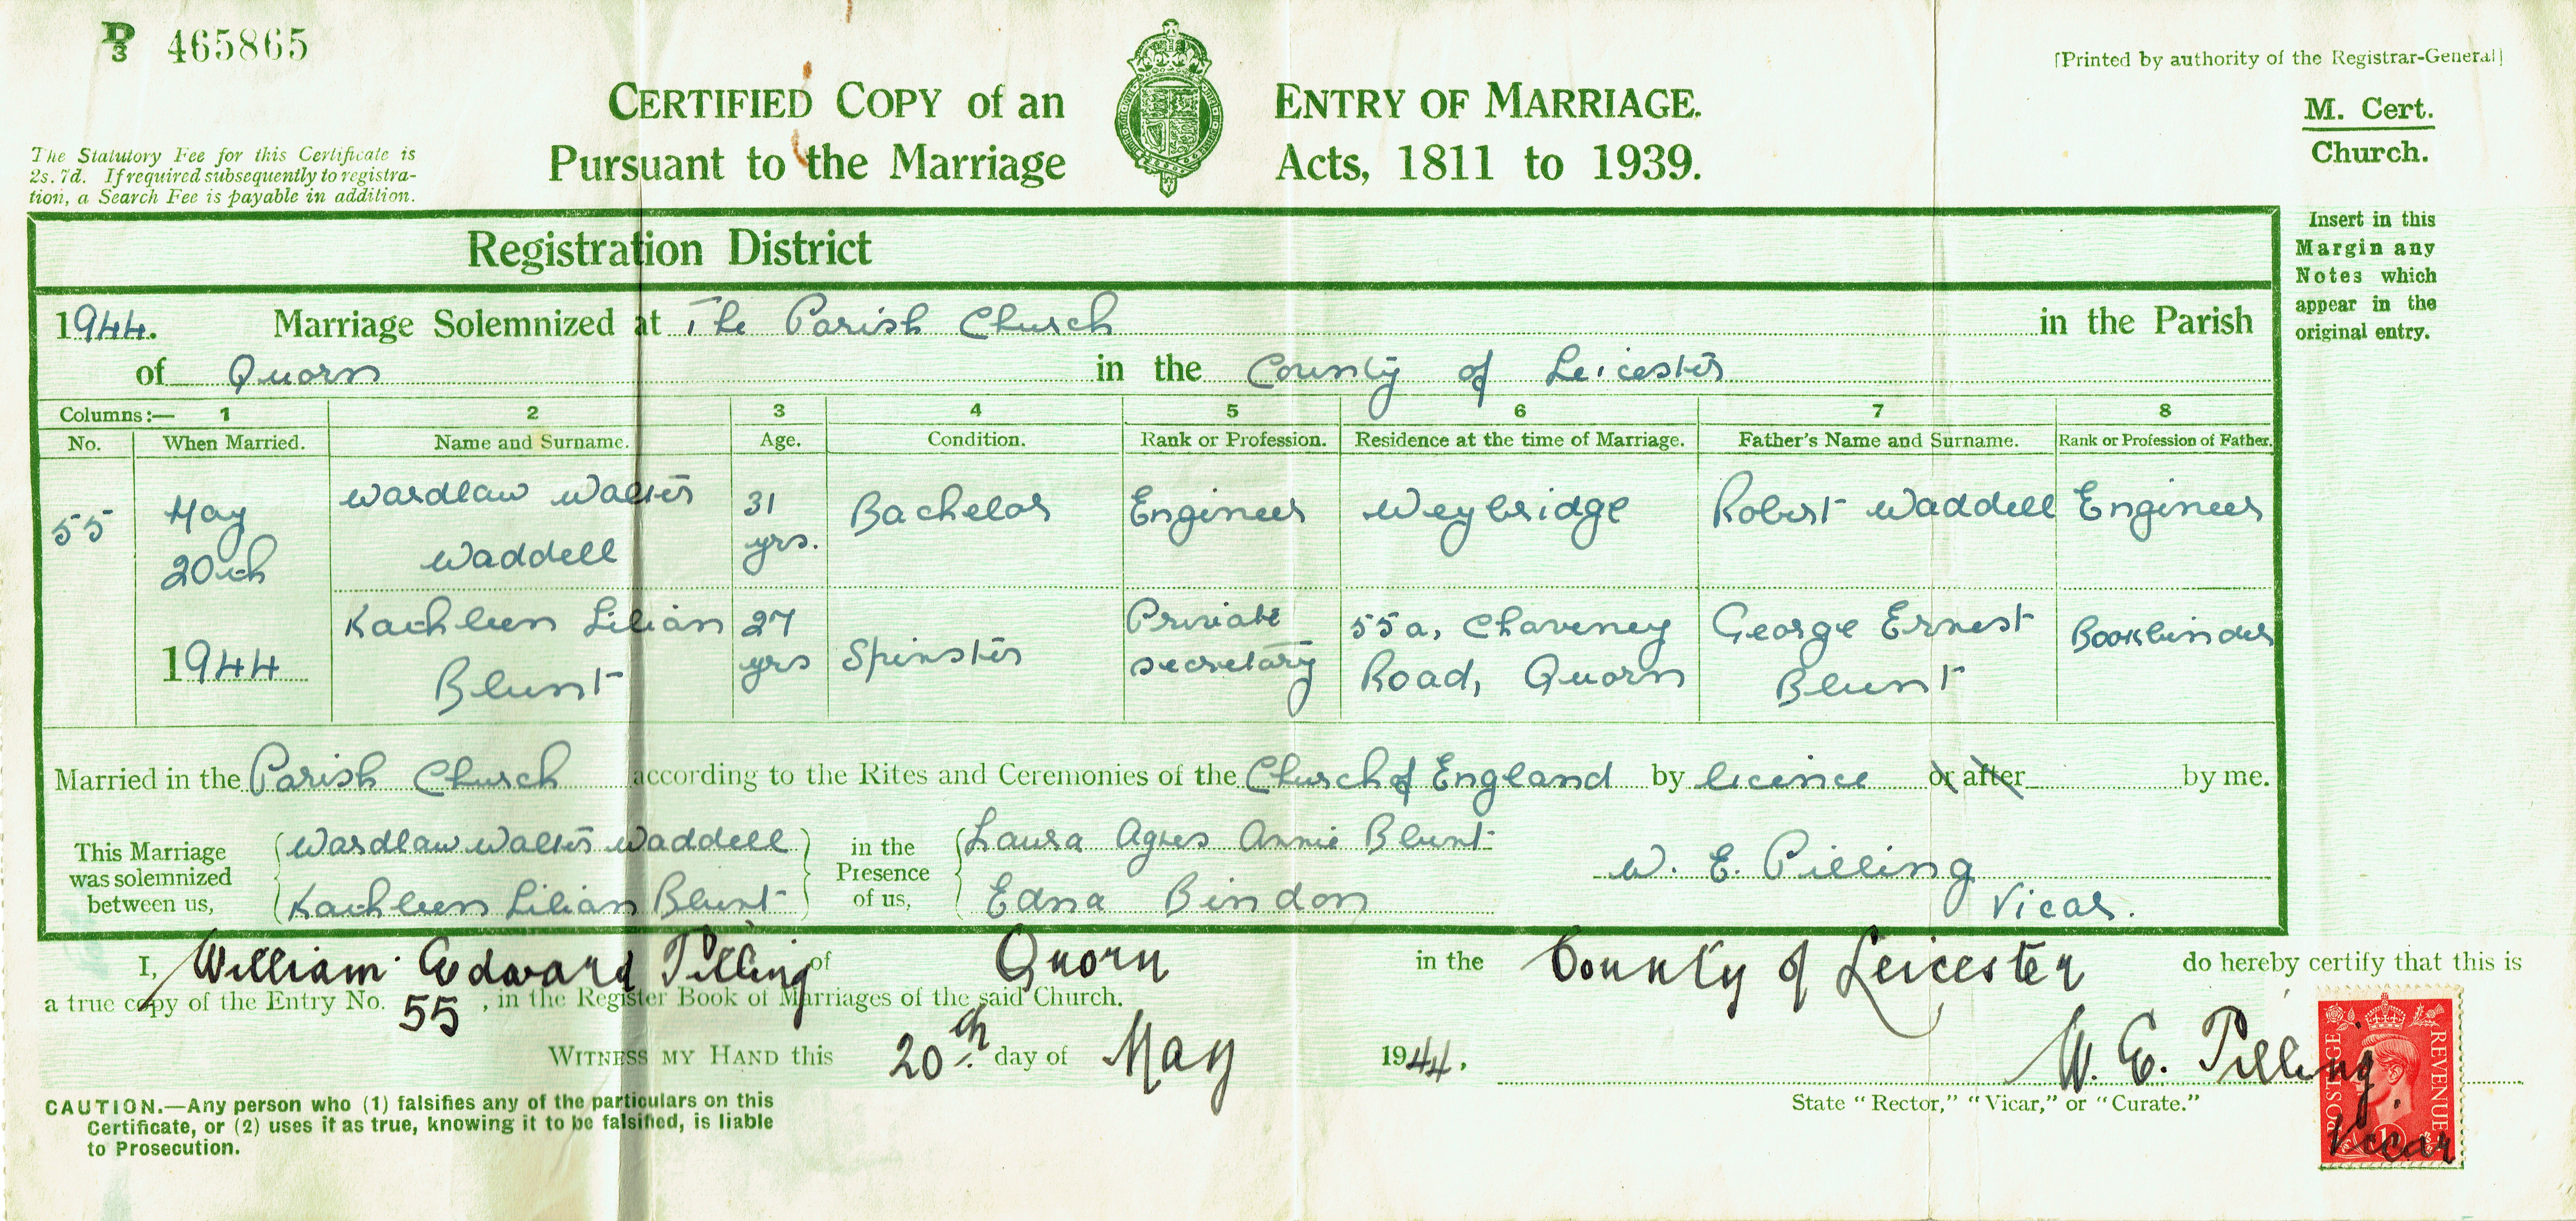 D/3 465865
[Printed by authority of the Registrar-General]
CERTIFIED COPY of an ENTRY OF MARRIAGE.
Pursuant to the Marriage Acts, 1811 to 1939.
M. Cert.
Church.
The Statutory Fee for this Certificate is
2s. 7d. If required subsequently to registra-
tion, a Search Fee is payable in addition.
Insert in this
Margin any
Notes which
appear in the
original entry.
Registration District
1944. Marriage Solemnized at The Parish Church in the Parish
of Quorn in the County of Leicester
Columns:— 1 2 3 4 5 6 7 8
No. When Married. Name and Surname. Age. Condition. Rank or Profession. Residence at the time of Marriage. Father's Name and Surname. Rank or Profession of Father.
55 May 20th 1944
Wardlaw Walter Waddell 31 yrs. Bachelor Engineer Weybridge Robert Waddell Engineer
Kathleen Lilian Blunt 27 yrs Spinster Private secretary 55a, Chaveney Road, Quorn George Ernest Blunt Bookbinder
Married in the Parish Church according to the Rites and Ceremonies of the Church of England by licence or after by me.
This Marriage was solemnized between us, Wardlaw Walter Waddell Kathleen Lilian Blunt in the Presence of us, Laura Agnes Annie Blunt Edna Bindon W. E. Pilling Vicar.
I, William Edward Pilling of Quorn in the County of Leicester do hereby certify that this is
a true copy of the Entry No. 55, in the Register Book of Marriages of the said Church.
WITNESS MY HAND this 20th day of May 1944. W. E. Pilling. Vicar
State "Rector," "Vicar," or "Curate."
POSTAGE REVENUE
CAUTION.—Any person who (1) falsifies any of the particulars on this
Certificate, or (2) uses it as true, knowing it to be falsified, is liable
to Prosecution.